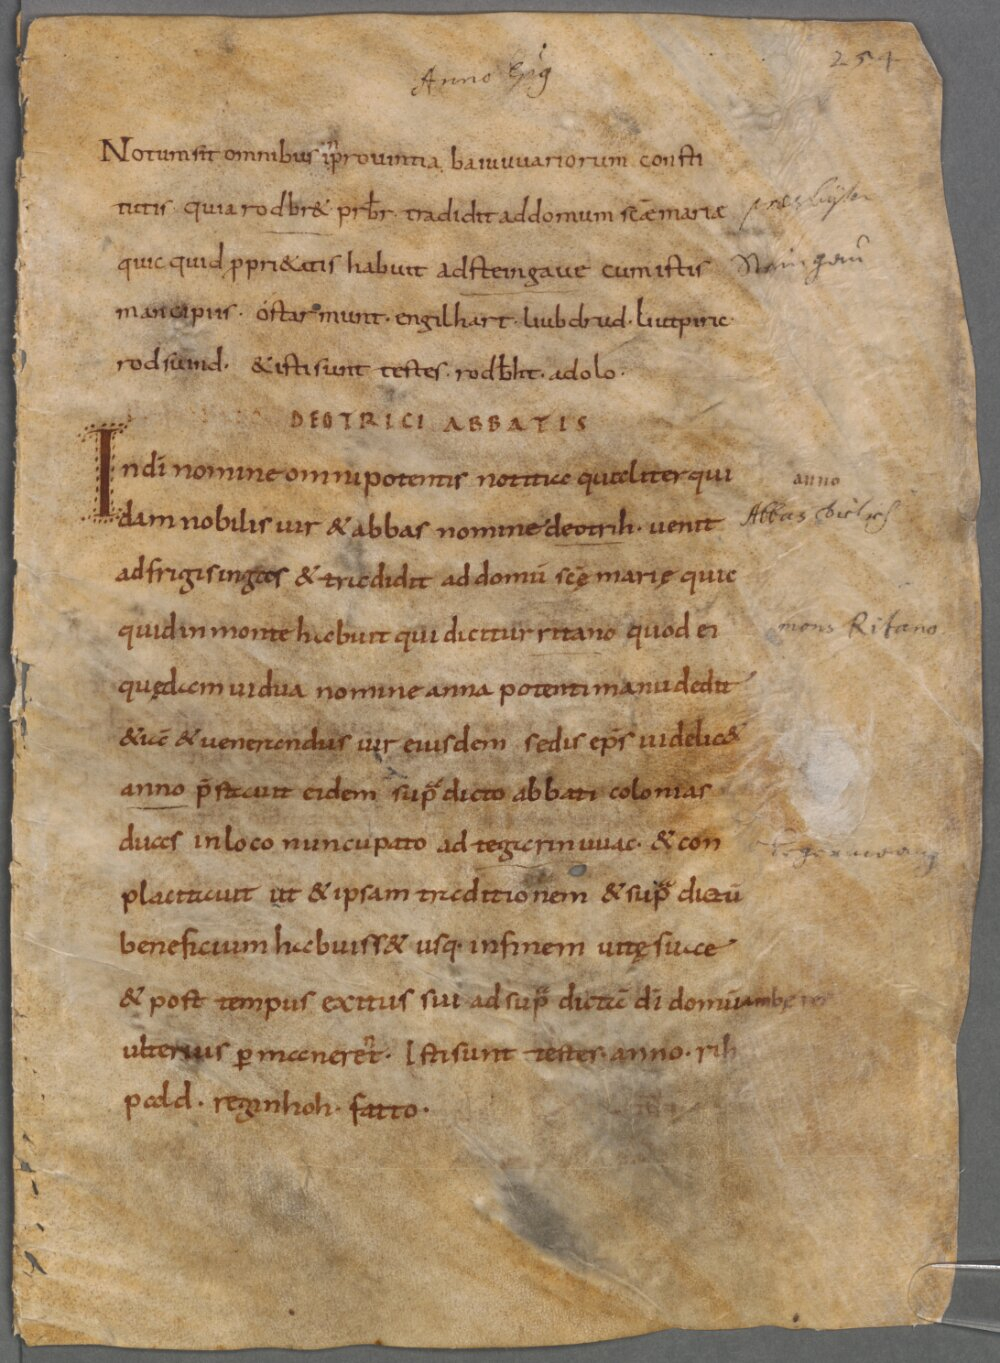 254
Anno
Notum sit omnibus ī provintia baiuuuariorum consti
tutis quia rodbr& prb̄r tradidit ad domum scǣ mariæ
presbyter
quic quid ppri&atis habuit ad steingauue cum istis
Staingau
mancipiis · ostar munt · engilhart · liubdrud · liutpiric
rodsuind · & isti sunt testes · rodb̄ht · adolo ·
DEOTRICI ABBATIS
In dī nomine omnipotentis notitia qualiter qui
anno
dam nobilis uir & abbas nomine deotrih · uenit
Abbas dietrich
ad frigisingas & tradidit ad domū scę̄ marię quic
quid in monte habuit qui dicitur ritano quod ei
mons Ritano
quędam uidua nomine anna potenti manu dedit
& uenerandus uir eiusdem sedis ep̄s uidelic&
anno p̄stauit eidem sup̄ dicto abbati colonias
duas in loco nuncupato ad tegarinuuac · & con
Tegernwang
placitauit ut & ipsam traditionem & sup̄ dictū
beneficium habuiss& usq· in finem uitę suae
& post tempus exitus sui ad sup̄ dictā dī domū
ulterius pmaneret · Isti sunt testes anno · rih
pald · reginhoh · fatto ·